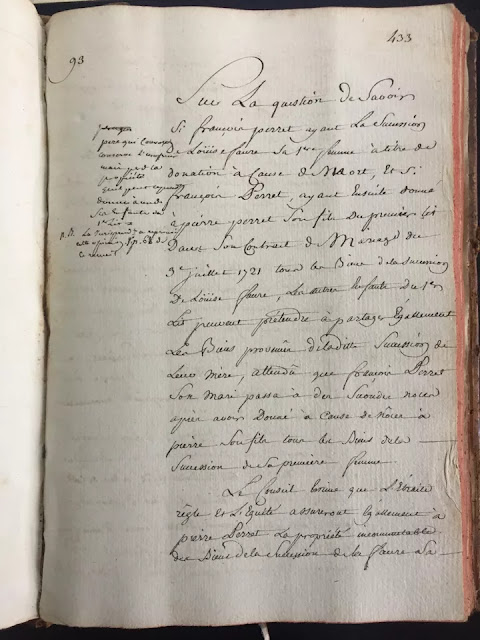 433
93
Sur La question de Savoir
Si françois perret ayant La Succession
de Loüise faure Sa 1re femme à titre de
donation à Cause de Mort, Et Si
françois Perret, ayant Ensuite donné
à pierre perret Son fils du premier lit
Dans Son Contrat de Mariage du
3e Juillet 1721 tous les Biens de la succession
De Loüise faure, Les autres Enfants du 1er
Lit peuvent prétendre à partager Egallement
Les Biens provenus de laditte Succession de
Leur Mère, attendû que françois Perret
Son Mari passa à des Secondes noces
après avoir Donné à Cause de Nôces à
pierre Son fils tous les Biens de la
Succession de Sa première femme
Le Conseil Estime que L'Etroite
règle Et L'Equité assureront Egallement à
pierre Perret La propriété incommutable
des Biens de la Succession de la faure Sa
pere qui Convole
Conserve
de la
propriété
qu'il peut
donner à un des
Enfants du
1er Lit
N.B. La Jurisprud.